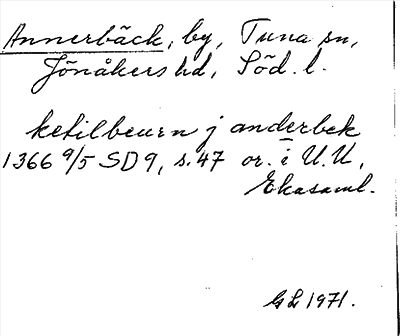 Annerbäck, by, Tuna sn,
Jönåkers hd, Söd. l.
ketilbeurn j anderbek
1366 9/5 SD 9, s. 47 or. i U.U,
Ekasaml.
GL 1971.